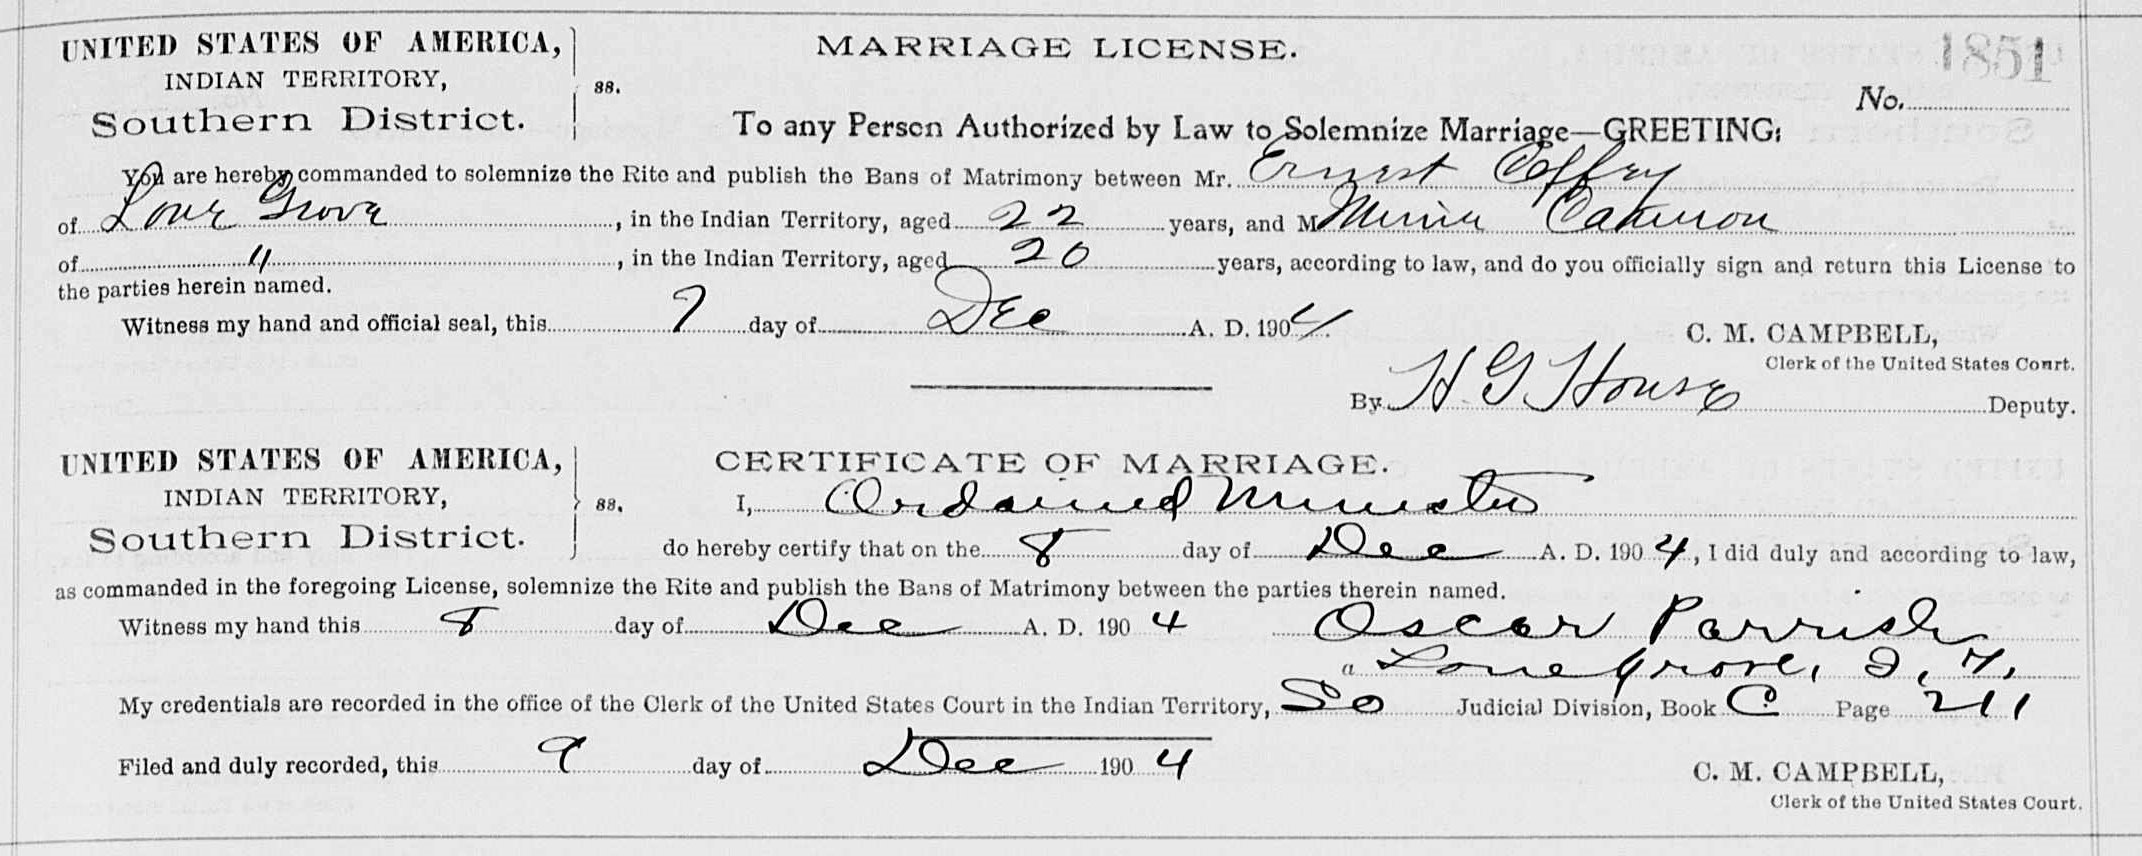 UNITED STATES OF AMERICA,
INDIAN TERRITORY,
Southern District.
ss.
MARRIAGE LICENSE.
1851
No.
To any Person Authorized by Law to Solemnize Marriage—GREETING:
You are hereby commanded to solemnize the Rite and publish the Bans of Matrimony between Mr. Ernest Coffey
of Lone Grove, in the Indian Territory, aged 22 years, and M Minnie
of 〃, in the Indian Territory, aged 20 years, according to law, and do you officially sign and return this License to
the parties herein named.
Witness my hand and official seal, this 7 day of Dec A. D. 1904.
C. M. CAMPBELL,
Clerk of the United States Court.
By H G House Deputy.
UNITED STATES OF AMERICA,
INDIAN TERRITORY,
Southern District.
ss.
CERTIFICATE OF MARRIAGE.
I, Ordained Minister
do hereby certify that on the 8 day of Dec A. D. 1904, I did duly and according to law,
as commanded in the foregoing License, solemnize the Rite and publish the Bans of Matrimony between the parties therein named.
Witness my hand this 8 day of Dec A. D. 1904 Oscar Parrish
a Lone Grove, I. T.
My credentials are recorded in the office of the Clerk of the United States Court in the Indian Territory, So Judicial Division, Book C Page 211
Filed and duly recorded, this 9 day of Dec 1904
C. M. CAMPBELL,
Clerk of the United States Court.